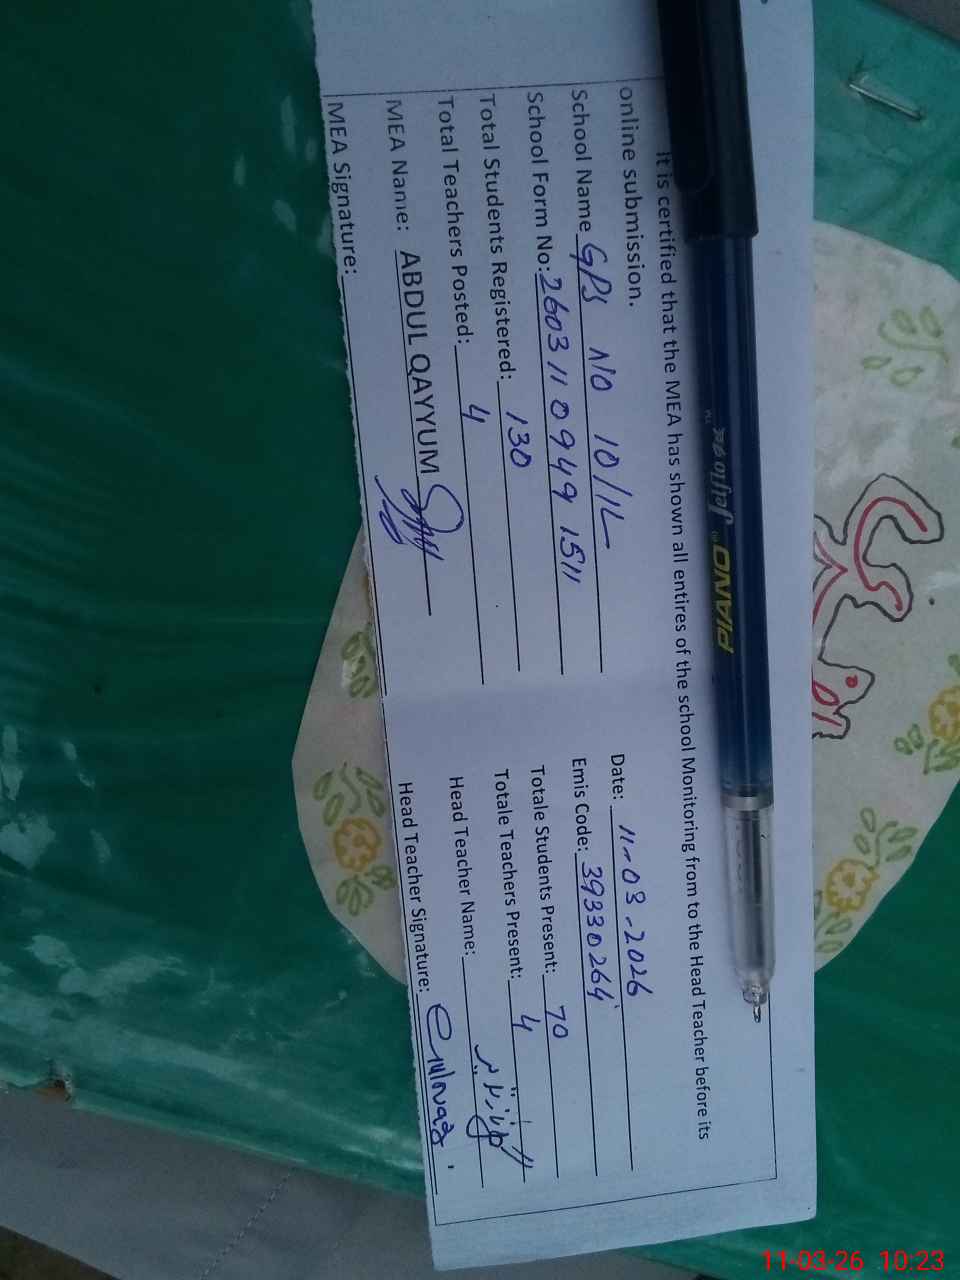 It is certified that the MEA has shown all entires of the school Monitoring from to the Head Teacher before its
online submission.
School Name GPS NO 10/1L
Date: 11-03-2026
School Form No: 26031109491511
Emis Code: 39330264
Total Students Registered: 130
Totale Students Present: 70
Total Teachers Posted: 4
Totale Teachers Present: 4
MEA Name: ABDUL QAYYUM
Head Teacher Name:
MEA Signature:
Head Teacher Signature:
PIANO
11-03-26 10:23